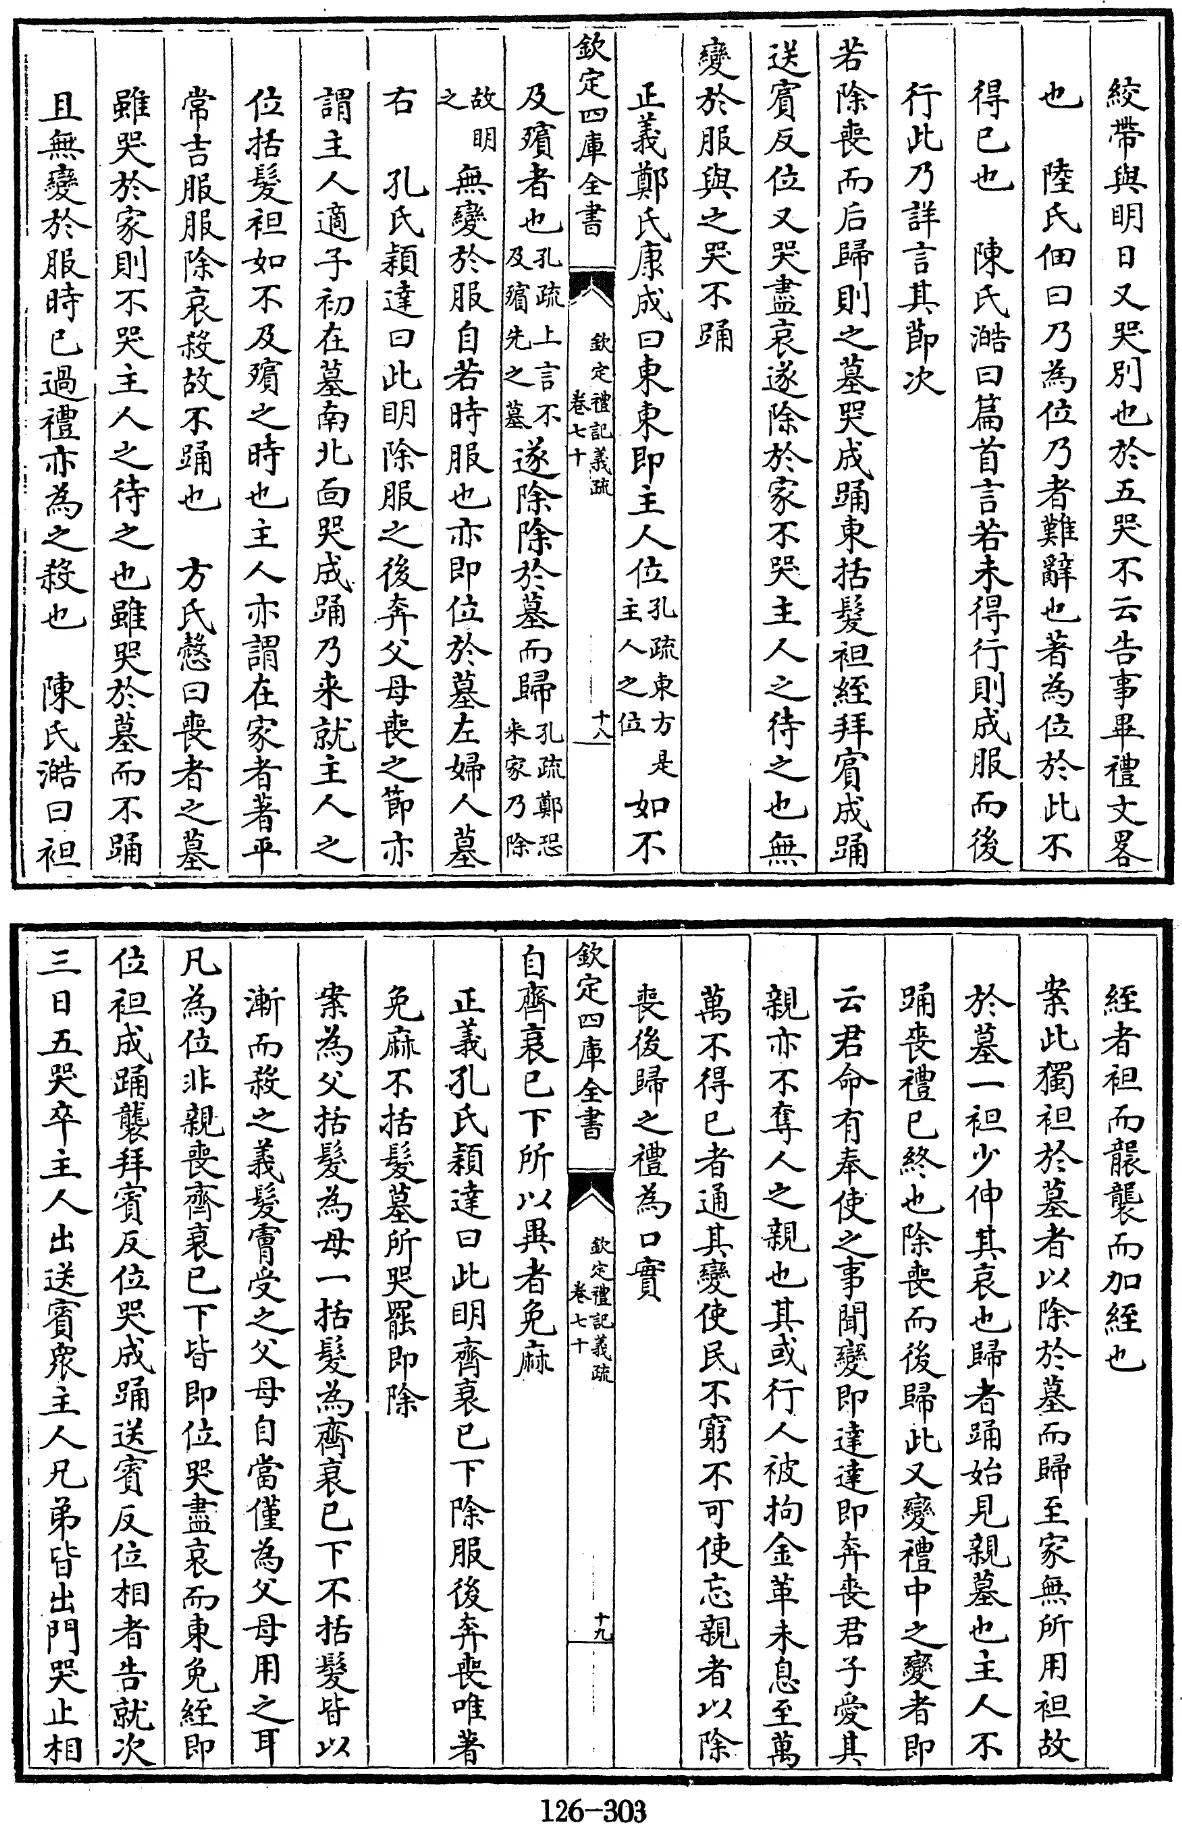 絞帶與明日又哭別也於五哭不云告事畢禮文畧
也　陸氏佃曰乃為位乃者難辭也著為位於此不
得已也　陳氏澔曰篇首言若未得行則成服而後
行此乃詳言其節次
若除喪而后歸則之墓哭成踊東括髮袒絰拜賓成踊
送賓反位又哭盡哀遂除於家不哭主人之待之也無
變於服與之哭不踊
正義鄭氏康成曰東東即主人位孔疏東方是主人之位如不
欽定四庫全書　欽定禮記義疏卷七十　十八
及殯者也孔疏上言不及殯先之墓遂除除於墓而歸孔疏鄭恐来家乃除
故明之無變於服自若時服也亦即位於墓左婦人墓
右　孔氏穎達曰此明除服之後奔父母喪之節亦
謂主人適子初在墓南北面哭成踊乃来就主人之
位括髮袒如不及殯之時也主人亦謂在家者著平
常吉服服除哀殺故不踊也　方氏慤曰喪者之墓
雖哭於家則不哭主人之待之也雖哭於墓而不踊
且無變於服時已過禮亦為之殺也　陳氏澔曰袒
絰者袒而襲襲而加絰也
案此獨袒於墓者以除於墓而歸至家無所用袒故
於墓一袒少伸其哀也歸者踊始見親墓也主人不
踊喪禮已終也除喪而後歸此又變禮中之變者即
云君命有奉使之事聞變即達達即奔喪君子愛其
親亦不奪人之親也其或行人被拘金革未息至萬
萬不得已者通其變使民不窮不可使忘親者以除
喪後歸之禮為口實
欽定四庫全書　欽定禮記義疏卷七十　十九
自齊衰已下所以異者免麻
正義孔氏穎達曰此明齊衰已下除服後奔喪唯著
免麻不括髮墓所哭罷即除
案為父括髮為母一括髮為齊衰已下不括髮皆以
漸而殺之義髮膚受之父母自當僅為父母用之耳
凡為位非親喪齊衰已下皆即位哭盡哀而東免絰即
位袒成踊襲拜賓反位哭成踊送賓反位相者告就次
三日五哭卒主人出送賓衆主人兄弟皆出門哭止相
126-303